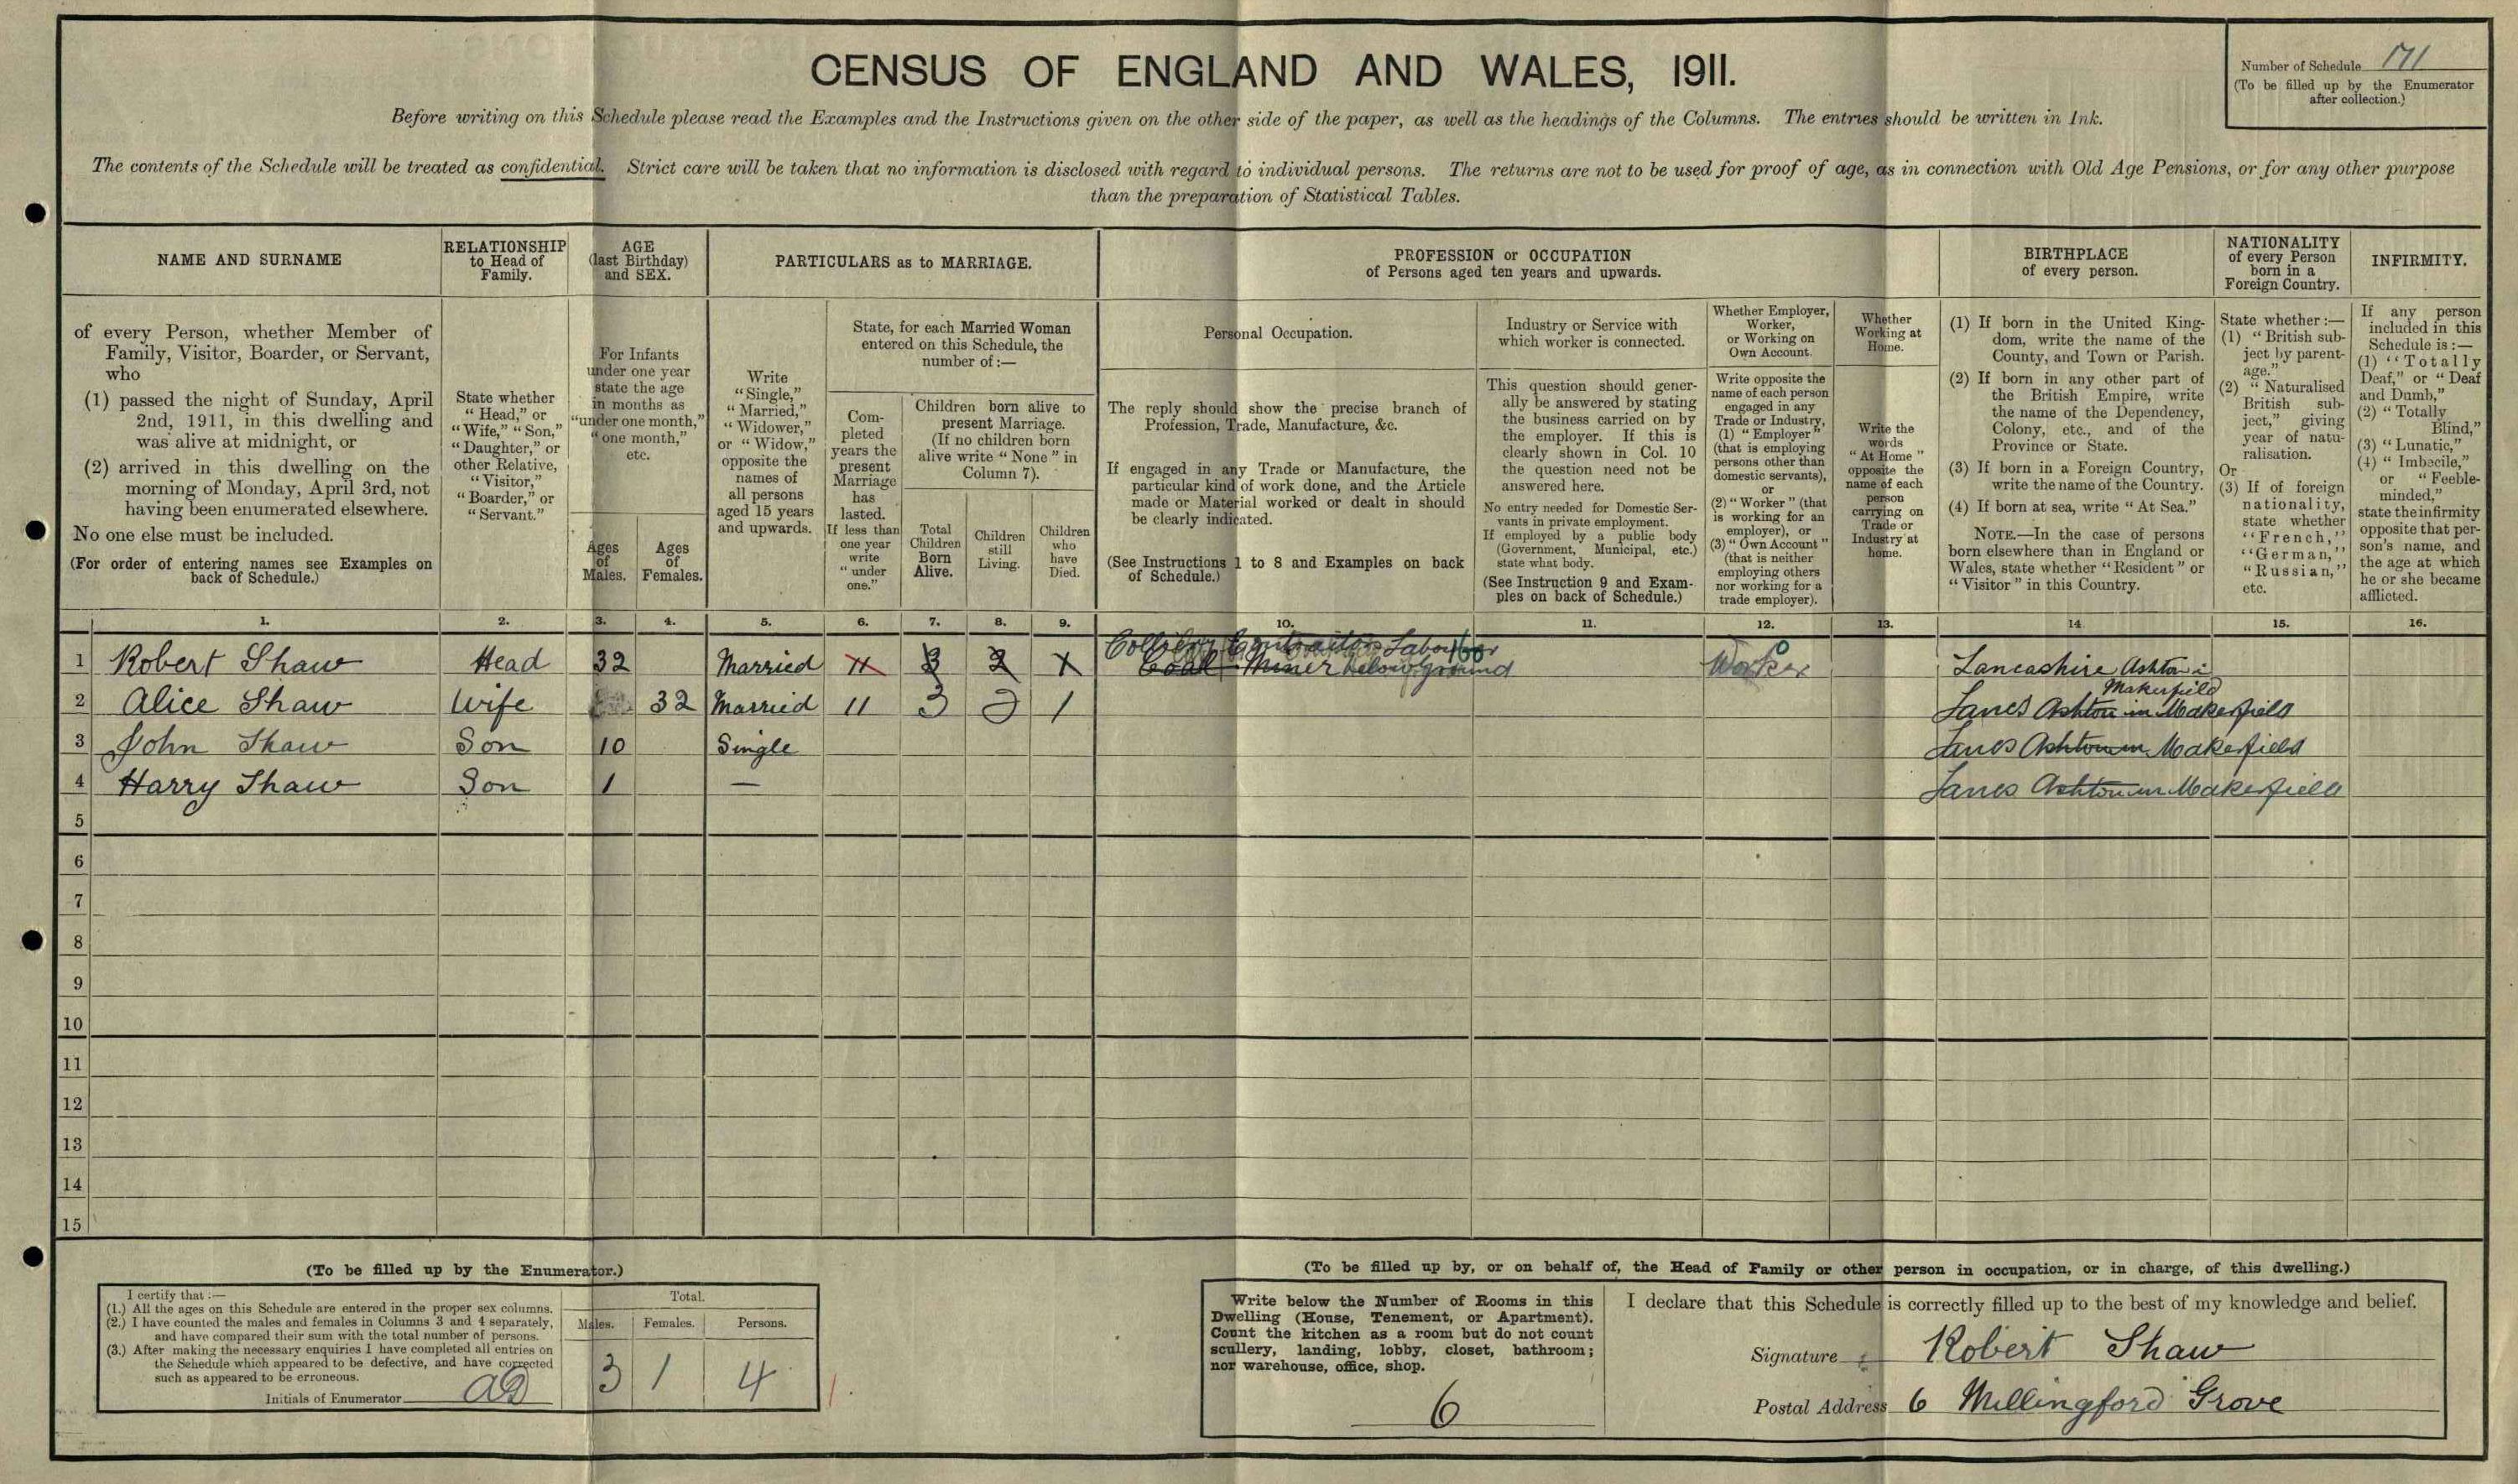 CENSUS OF ENGLAND AND WALES, 1911.
Number of Schedule 171
(To be filled up by the Enumerator
after collection.)
Before writing on this Schedule please read the Examples and the Instructions given on the other side of the paper, as well as the headings of the Columns. The entries should be written in Ink.
The contents of the Schedule will be treated as confidential. Strict care will be taken that no information is disclosed with regard to individual persons. The returns are not to be used for proof of age, as in connection with Old Age Pensions, or for any other purpose
than the preparation of Statistical Tables.
NAME AND SURNAME
of every Person, whether Member of
Family, Visitor, Boarder, or Servant,
who
(1) passed the night of Sunday, April
2nd, 1911, in this dwelling and
was alive at midnight, or
(2) arrived in this dwelling on the
morning of Monday, April 3rd, not
having been enumerated elsewhere.
No one else must be included.
(For order of entering names see Examples on
back of Schedule.)
RELATIONSHIP
to Head of
Family.
State whether
"Head," or
"Wife," "Son,"
"Daughter," or
other Relative,
"Visitor,"
"Boarder," or
"Servant."
AGE
(last Birthday)
and SEX.
For Infants
under one year
state the age
in months as
"under one month,"
"one month,"
etc.
Ages
of
Males.
Ages
of
Females.
PARTICULARS as to MARRIAGE.
Write
"Single,"
"Married,"
"Widower,"
or "Widow,"
opposite the
names of
all persons
aged 15 years
and upwards.
State, for each Married Woman
entered on this Schedule, the
number of:—
Com-
pleted
years the
present
Marriage
has
lasted.
If less than
one year
write
"under
one."
Children born alive to
present Marriage.
(If no children born
alive write "None" in
Column 7).
Total
Children
Born
Alive.
Children
still
Living.
Children
who
have
Died.
PROFESSION or OCCUPATION
of Persons aged ten years and upwards.
Personal Occupation.
The reply should show the precise branch of
Profession, Trade, Manufacture, &c.
If engaged in any Trade or Manufacture, the
particular kind of work done, and the Article
made or Material worked or dealt in should
be clearly indicated.
(See Instructions 1 to 8 and Examples on back
of Schedule.)
Industry or Service with
which worker is connected.
This question should gener-
ally be answered by stating
the business carried on by
the employer. If this is
clearly shown in Col. 10
the question need not be
answered here.
No entry needed for Domestic Ser-
vants in private employment.
If employed by a public body
(Government, Municipal, etc.)
state what body.
(See Instruction 9 and Exam-
ples on back of Schedule.)
Whether Employer,
Worker,
or Working on
Own Account.
Write opposite the
name of each person
engaged in any
Trade or Industry,
(1) "Employer"
(that is employing
persons other than
domestic servants),
or
(2) "Worker" (that
is working for an
employer), or
(3) "Own Account"
(that is neither
employing others
nor working for a
trade employer).
Whether
Working at
Home.
Write the
words
"At Home"
opposite the
name of each
person
carrying on
Trade or
Industry at
home.
BIRTHPLACE
of every person.
(1) If born in the United King-
dom, write the name of the
County, and Town or Parish.
(2) If born in any other part of
the British Empire, write
the name of the Dependency,
Colony, etc., and of the
Province or State.
(3) If born in a Foreign Country,
write the name of the Country.
(4) If born at sea, write "At Sea."
NOTE.—In the case of persons
born elsewhere than in England or
Wales, state whether "Resident" or
"Visitor" in this Country.
NATIONALITY
of every Person
born in a
Foreign Country.
State whether:—
(1) "British sub-
ject by parent-
age."
(2) "Naturalised
British sub-
ject," giving
year of natu-
ralisation.
Or
(3) If of foreign
nationality,
state whether
"French,"
"German,"
"Russian,"
etc.
INFIRMITY.
If any person
included in this
Schedule is:—
(1) "Totally
Deaf," or "Deaf
and Dumb,"
(2) "Totally
Blind,"
(3) "Lunatic,"
(4) "Imbecile,"
or "Feeble-
minded,"
state the infirmity
opposite that per-
son's name, and
the age at which
he or she became
afflicted.
1. 2. 3. 4. 5. 6. 7. 8. 9. 10. 11. 12. 13. 14 15. 16.
Colliery Contractors Labourer
1 Robert Shaw Head 32 Married 11 3 2 1 Coal Miner below ground 160 Worker 0 Lancashire Ashton i
Makerfield
2 Alice Shaw Wife 32 Married 11 3 2 1 Lancs Ashton in Makerfield
3 John Shaw Son 10 Single Lancs Ashton in Makerfield
4 Harry Shaw Son 1 — Lancs Ashton in Makerfield
5
6
7
8
9
10
11
12
13
14
15
(To be filled up by the Enumerator.)
I certify that:—
(1.) All the ages on this Schedule are entered in the proper sex columns.
(2.) I have counted the males and females in Columns 3 and 4 separately,
and have compared their sum with the total number of persons.
(3.) After making the necessary enquiries I have completed all entries on
the Schedule which appeared to be defective, and have corrected
such as appeared to be erroneous.
Initials of Enumerator AD
Total.
Males. Females. Persons.
3 1 4
(To be filled up by, or on behalf of, the Head of Family or other person in occupation, or in charge, of this dwelling.)
Write below the Number of Rooms in this
Dwelling (House, Tenement, or Apartment).
Count the kitchen as a room but do not count
scullery, landing, lobby, closet, bathroom;
nor warehouse, office, shop.
6
I declare that this Schedule is correctly filled up to the best of my knowledge and belief.
Signature Robert Shaw
Postal Address 6 Millingford Grove